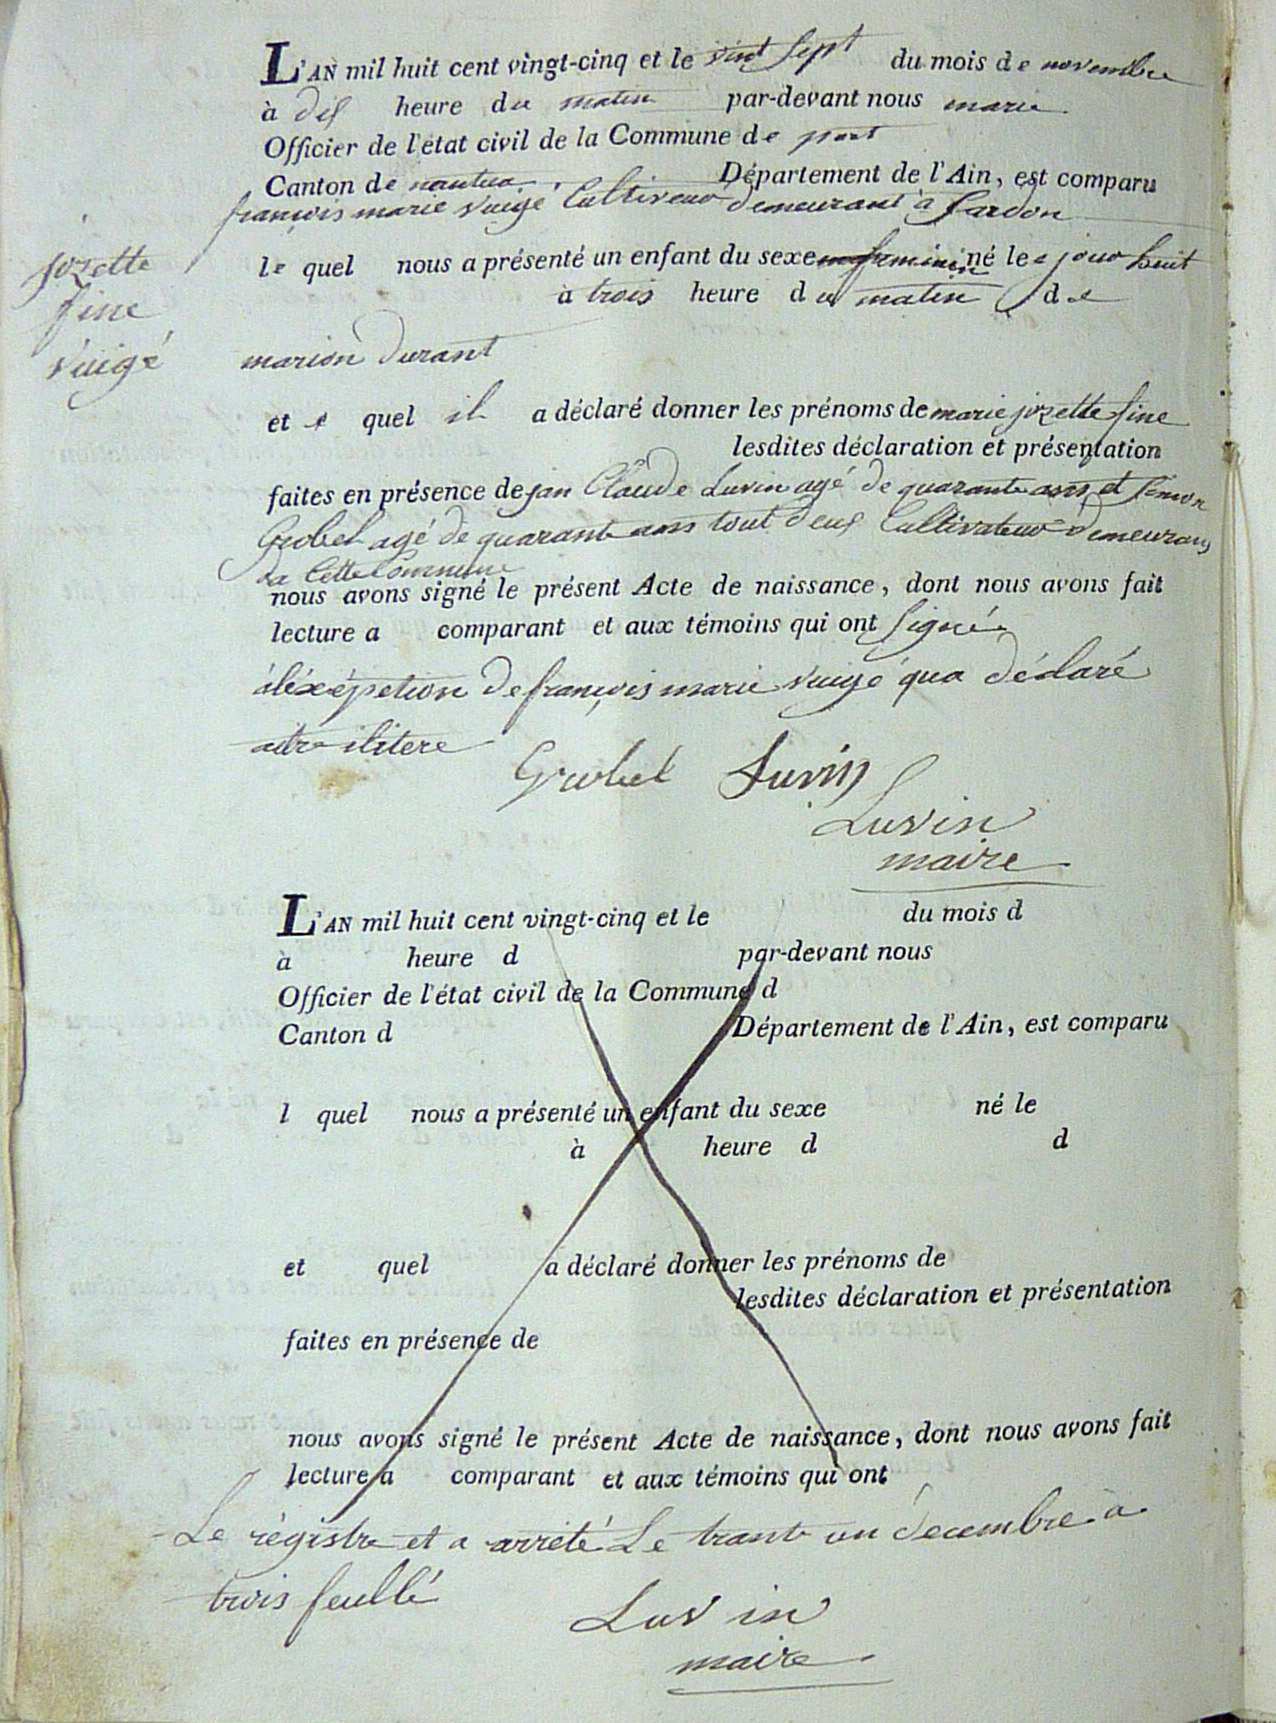 L'AN mil huit cent vingt-cinq et le vint sept du mois de novembre
à dix heure du matin par-devant nous maire
Officier de l'état civil de la Commune de port
Canton de nantua Département de l'Ain, est comparu
françois marie vuigé Cultiveur demeurant à Sardon
jozette
fine
vuigé
le quel nous a présenté un enfant du sexe feminin né le jour huit
à trois heure du matin de
marion durant
et quel il a déclaré donner les prénoms de marie jozette fine
lesdites déclaration et présentation
faites en présence de jan Claude Luvin agé de quarante ans et Simon
Grobel agé de quarante ans tout deux Cultivateur demeurans
da cette Commune
nous avons signé le présent Acte de naissance, dont nous avons fait
lecture a comparant et aux témoins qui ont signé
àléxépetion de françois marie vuigé qua déclaré
aitre ilitere
Grobel Luvin
Luvin
maire
L'AN mil huit cent vingt-cinq et le du mois d
à heure d par-devant nous
Officier de l'état civil de la Commune d
Canton d Département de l'Ain, est comparu
l quel nous a présenté un enfant du sexe né le
à heure d d
et quel a déclaré donner les prénoms de
lesdites déclaration et présentation
faites en présence de
nous avons signé le présent Acte de naissance, dont nous avons fait
lecture a comparant et aux témoins qui ont
Le régistre et a arrété Le trante un décembre a
trois feullé
Luvin
maire